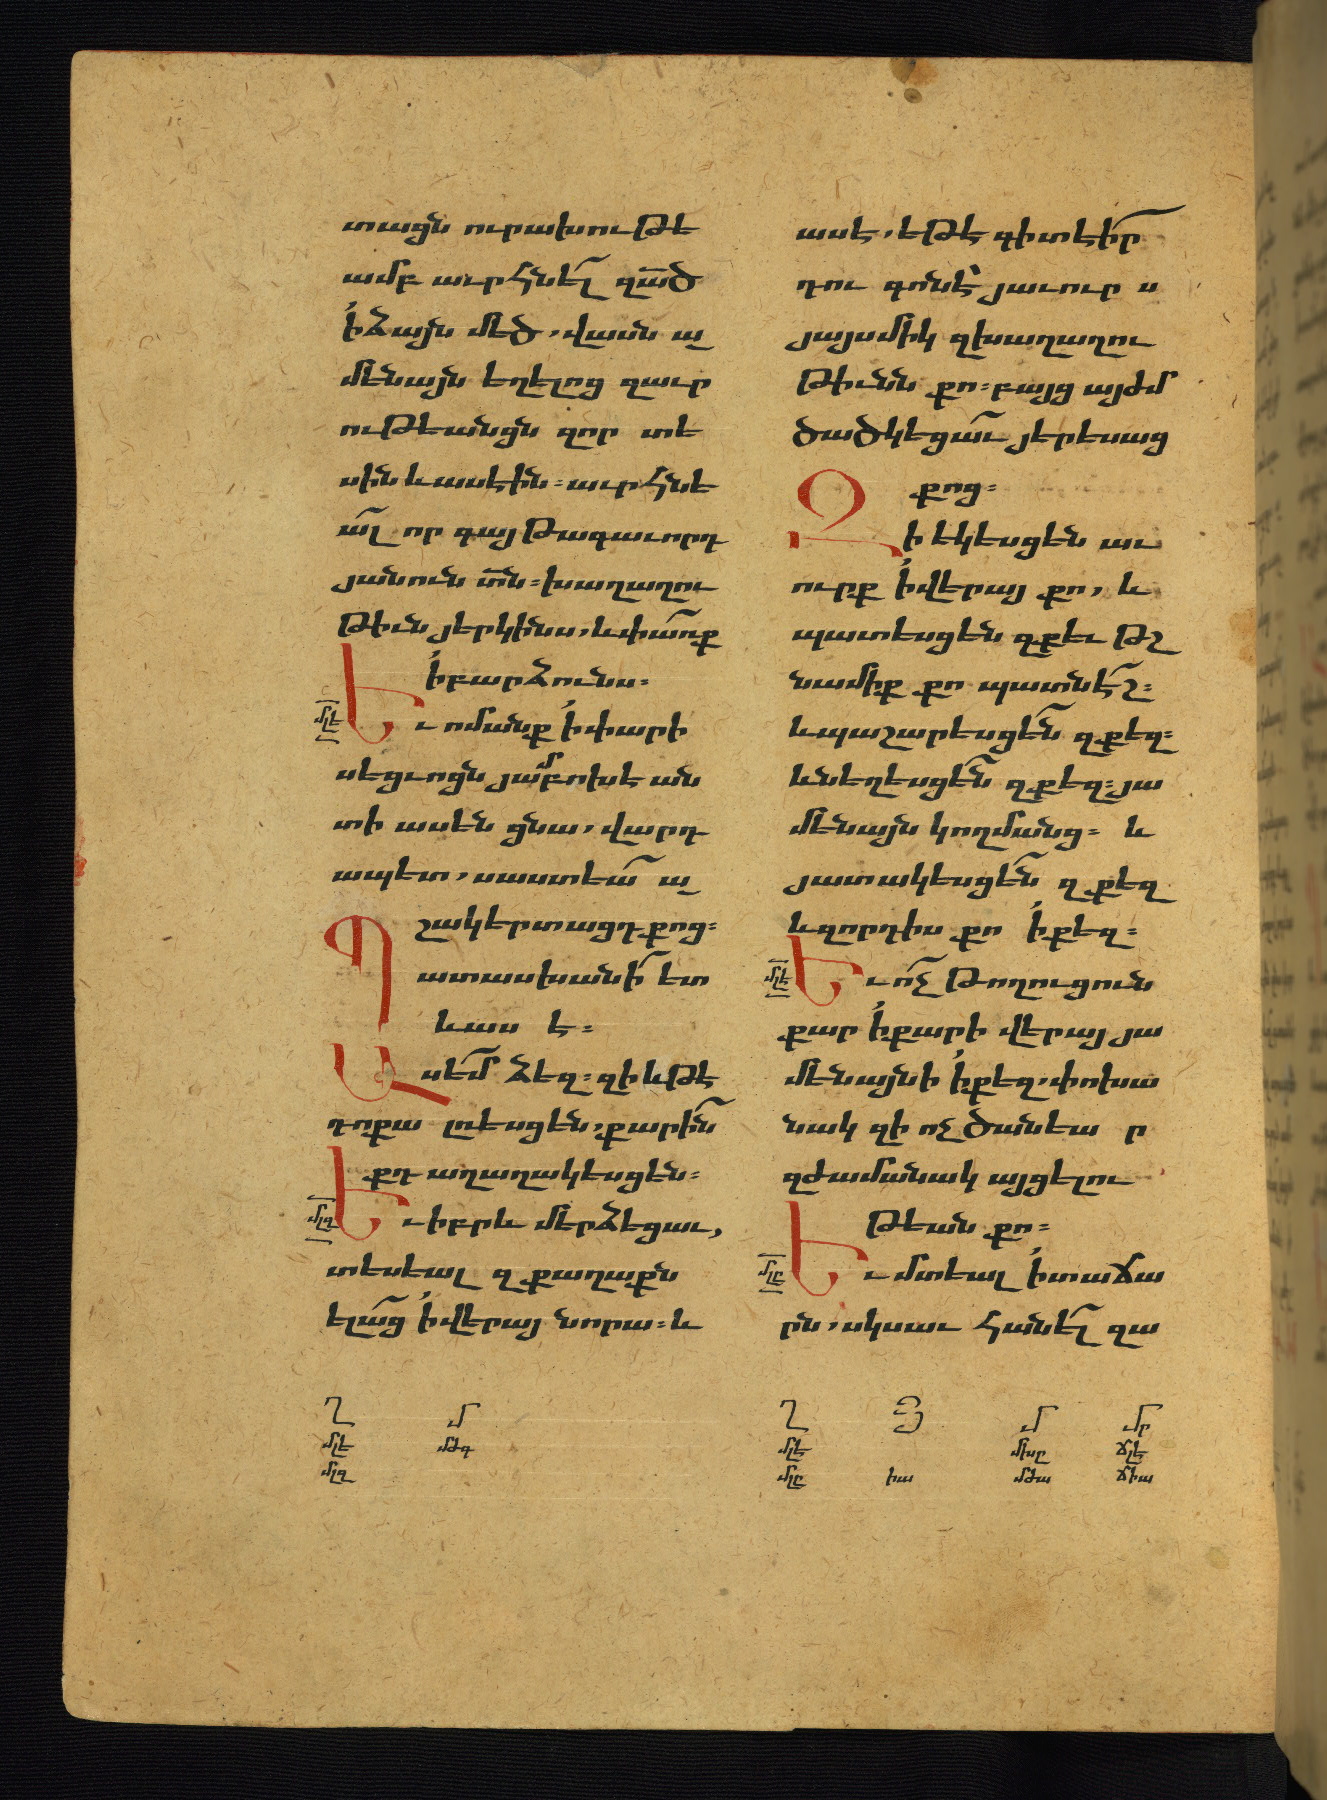 տացն ուրախութե
ամբ աւրհնել զա̅ծ
ի ձայն մեծ, վասն ա
մենայն եղելոց զաւր
ութեանցն զոր տե
սին և ասէին։ աւրհնե
ալ որ գայ թագաւորդ
յանուն տ̅ն։ խաղաղու
թիւն յերկինս, և փառք
ի բարձունս։
մլե
Եւ ոմանք ի փարի
սեցւոցն յամբոխէ ան
տի ասեն ցնա, վարդ
ապետ, սաստեա ա
շակերտացդ քոց։
Պատասխանի ետ
և աս է։
Ասեմ ձեզ։ զի և թէ
դոքա լռեսցեն, քարինք
քդ աղաղակեսցեն։
մլզ
Եւ իբրև մերձեցաւ,
տեսեալ զքաղաքն
ելաց ի վերայ նորա։ և
Ղ Մ
մլե մթգ
մլզ
ասէ, եթէ գիտէիր
դու գոնէ յաւուր ս
յայսմիկ զխաղաղու
թիւնն քո։ բայց այժմ
ծածկեցաւ յերեսաց
քոց։
Զի եկեսցեն աւ
ուրք ի վերայ քո, և
պատեսցեն զքեւ թշ
նամիք քո պատնէշ։
և պաշարեսցեն զքեզ։
և նեղեսցեն զքեզ։ յա
մենայն կողմանց։ և
յատակեսցեն զքեզ
և զորդիս քո ի քեզ։
մլէ
Եւ ոչ թողուցուն
քար ի քարի վերայ յա
մենայնի ի քեզ, փոխա
նակ զի ոչ ծանեա ր
զժամանակ այցելու
թեան քո։
մլը
Եւ մտեալ ի տաճա
րն, սկսաւ հանել զա
Ղ Յ Մ Մր
մլէ մխը ճլէ
մլը իա մժա ճխա